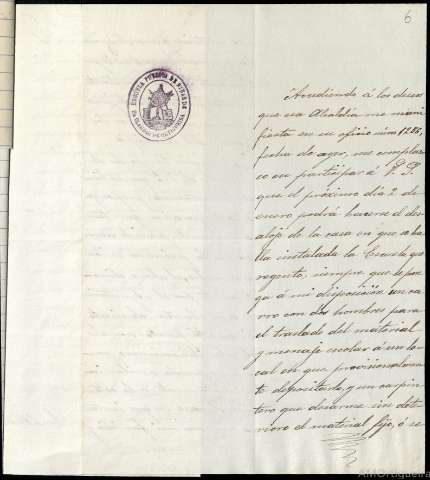 6
ESCUELA PÚBLICA DE
Accediendo á los deseos
que esa Alcaldía me mani
fiesta en su oficio núm 1286,
fecha de ayer, me complaz
co en participar á V. S.
que el próximo dia 2 de
enero podrá hacerse el des
alojo de la casa en que se ha
lla instalada la Escuela que
regento, siempre que se pon
ga á mi disposición un ca
rro con dos hombres para
el traslado del material
y menaje escolar á un lo
cal en que provisionalmen
te depositarlo, y un carpin
tero que desarme sin dete
rioro el material fijo, ó se
AMOrtigueira